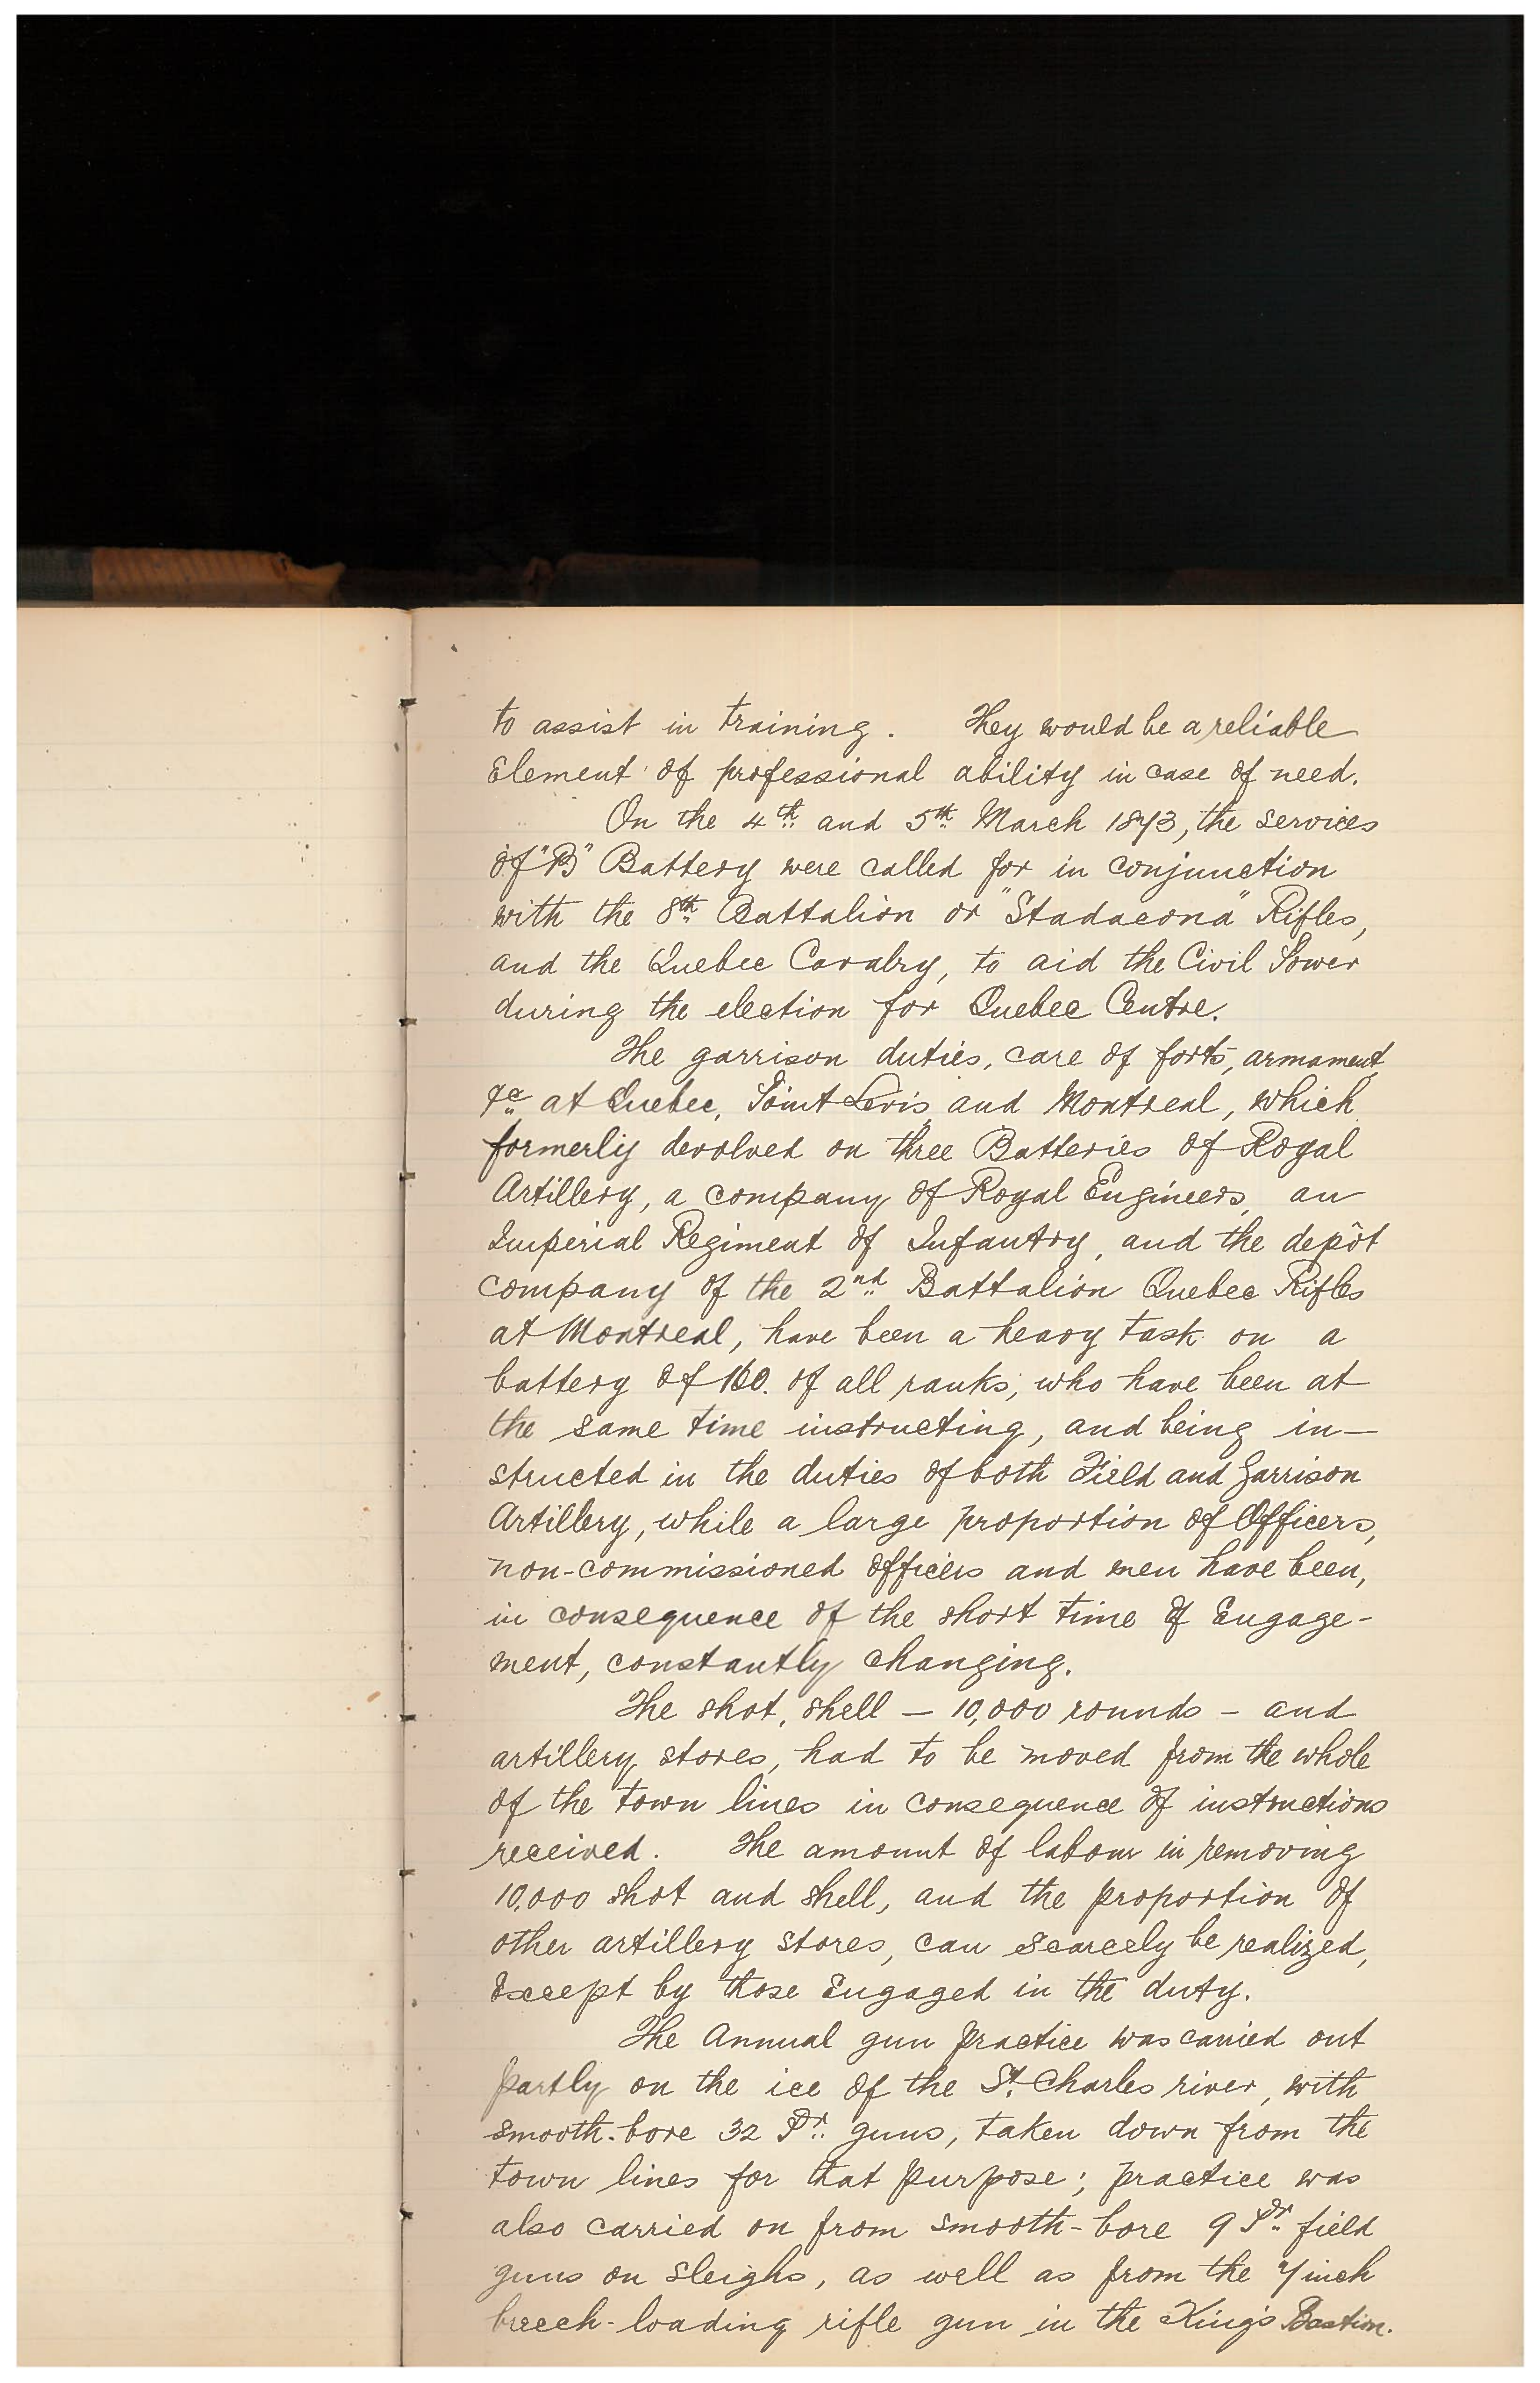 to assist in training. They would be a reliable
Element of professional ability in case of need.
On the 4th and 5th March 1873, the services
of "B" Battery were called for in conjunction
with the 8th Battalion or "Stadacona" Rifles,
and the Quebec Cavalry, to aid the Civil Power
during the election for Quebec Centre.
The garrison duties, care of forts, armament,
&c at Quebec, Point Levis, and Montreal, which
formerly devolved on three Batteries of Royal
Artillery, a company of Royal Engineers, an
Imperial Regiment of Infantry, and the depôt
company of the 2nd Battalion Quebec Rifles
at Montreal, have been a heavy task on a
battery of 160. of all ranks, who have been at
the same time instructing, and being in-
structed in the duties of both Field and Garrison
Artillery, while a large proportion of Officers,
non-commissioned officers and men have been,
in consequence of the short time of Engage-
ment, constantly changing.
The shot, shell - 10,000 rounds - and
artillery stores, had to be moved from the whole
of the town lines in consequence of instructions
received. The amount of labour in removing
10,000 shot and shell, and the proportion of
other artillery stores, can scarcely be realized,
Except by those Engaged in the duty.
The Annual gun practice was carried out
partly on the ice of the St. Charles river, with
smooth-bore 32 Pr. guns, taken down from the
town lines for that purpose; practice was
also carried on from smooth-bore 9 Pr. field
guns on sleighs, as well as from the 7 inch
breech-loading rifle gun in the King's Bastion.